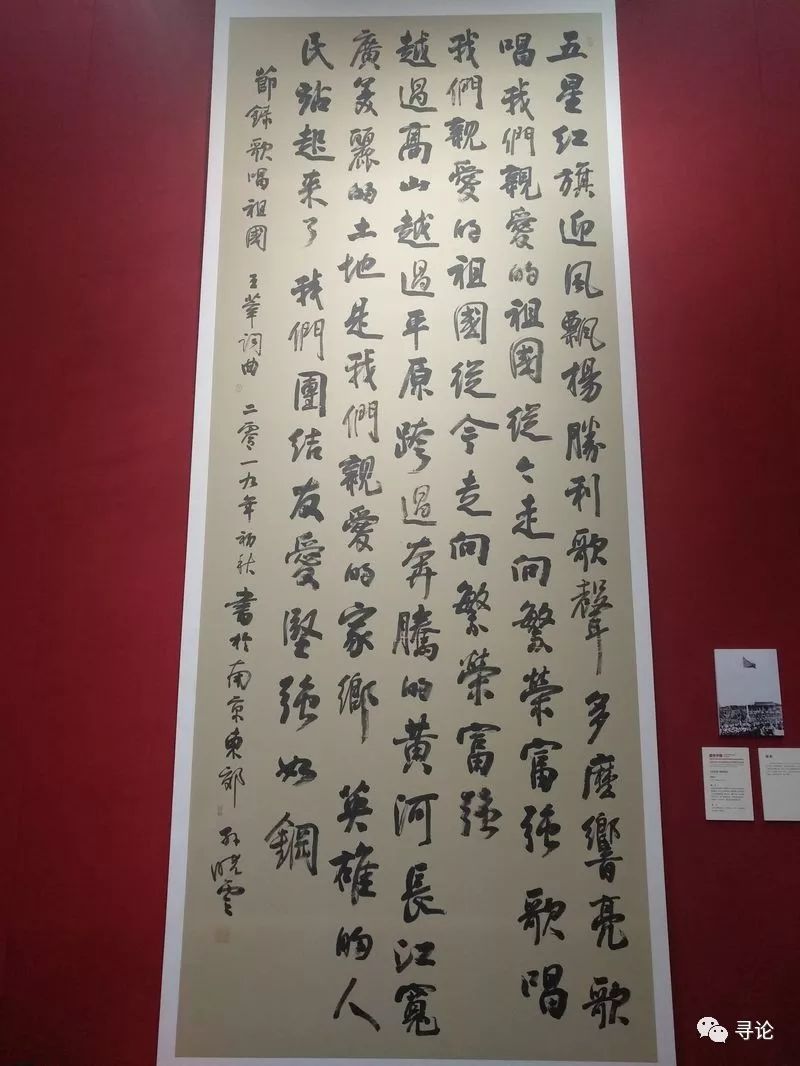 五星红旗迎風飄揚勝利歌聲多麼響亮歌
唱我們親愛的祖國從今走向繁榮富強 歌唱
我們親愛的祖國從今走向繁榮富強
越過高山越過平原跨過奔騰的黄河長江寬
廣美麗的土地是我們親愛的家鄉 英雄的人
民站起来了 我們團結友愛堅強如鋼
節録歌唱祖國 王莘詞曲 二零一九年初秋 書於南京東郊 孫曉雲
寻论